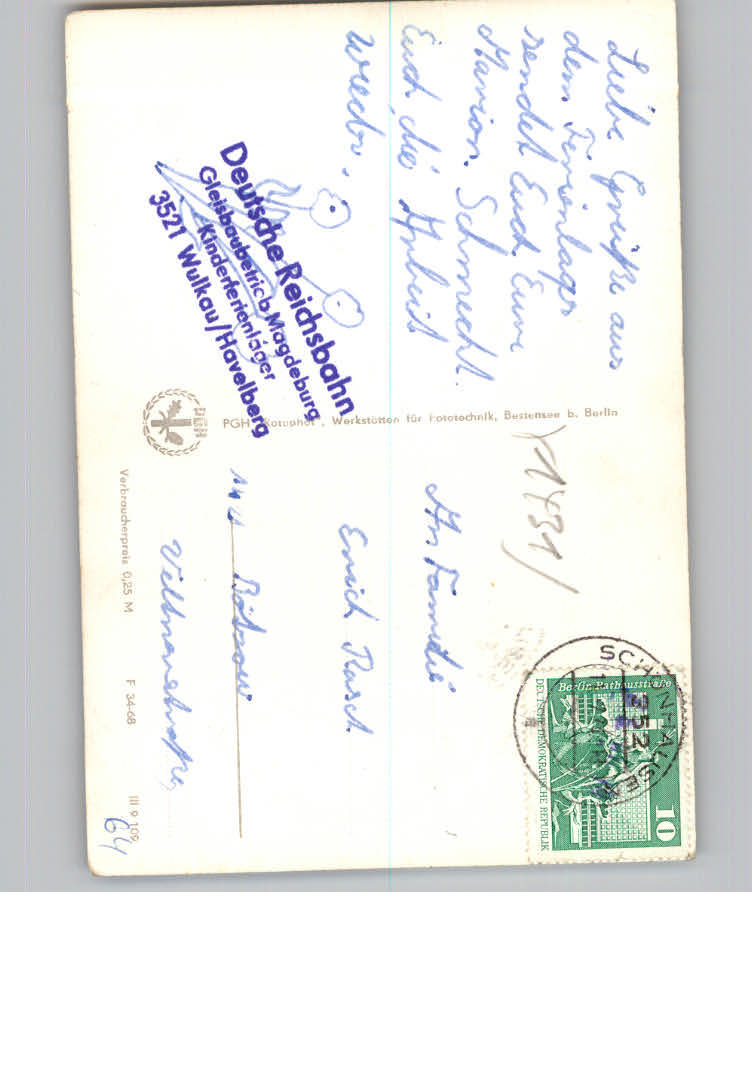 Liebe Grüße aus
dem Ferienlager
sendet Euch Eure
Marion. Schmeckt
Euch die Arbeit
wieder.
Deutsche Reichsbahn
Gleisbaubetrieb Magdeburg
Kinderferienlager
3521 Wulkau/Havelberg
PGH Rotophot, Werkstätten für Fototechnik, Bestensee b. Berlin
PGH
Verbraucherpreis 0,25 M
F 34-68
III 9 109
64
1431/
An Familie
Erich
1431
Berlin Rathausstraße
DEUTSCHE DEMOKRATISCHE REPUBLIK
10
SCHÖNHAUSEN
352